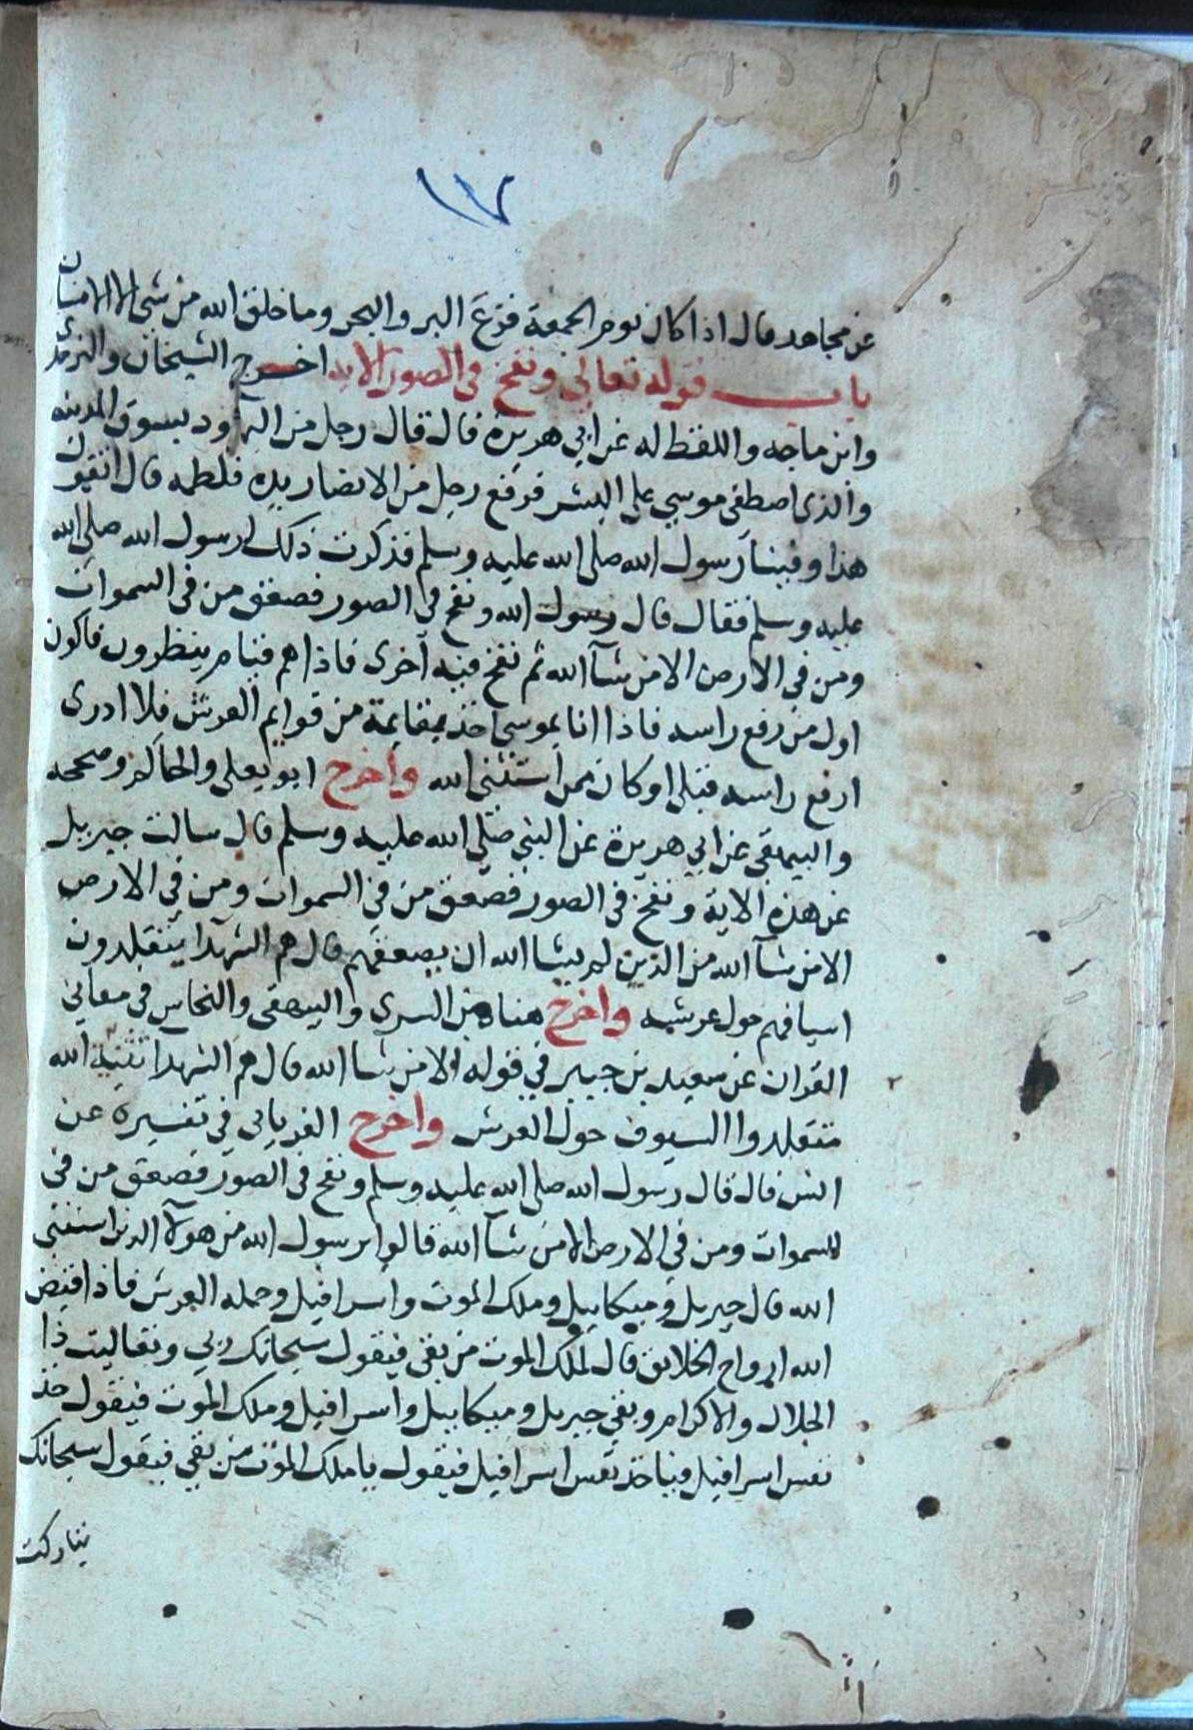 ١٧
عن مجاهد قال اذا كان يوم الجمعة فزع البر والبحر وما خلق الله من شي الا الانسان
باب قوله تعالى ونفخ في الصور الاية اخرج الشيخان والترمذي
وابن ماجه واللفظ له عن ابي هريرة قال قال رجل من اليهود بسوق المدينه
والذي اصطفى موسي على البشر فرفع رجل من الانصار يده فلطمه قال اتقول
هذا وفينا رسول الله صلى الله عليه وسلم فذكرت ذلك لرسول الله صلى الله
عليه وسلم فقال قال رسول الله ونفخ في الصور فصعق من في السموات
ومن في الارض الا من شآ الله ثم نفخ فيه اخرى فاذا هم قيام ينظرون فاكون
اول من رفع راسه فاذا انا بموسى اخذ بقايمة من قوايم العرش فلا ادرى
ارفع راسه قبلي او كان ممن استثنى الله واخرج ابو يعلى والحاكم وصححه
والبيهقي عن ابي هريرة عن النبي صلى الله عليه وسلم قال سالت جبريل
عن هذه الاية ونفخ في الصور فصعق من في السموات ومن في الارض
الا من شآ الله من الذين لم يشا الله ان يصعقهم قال هم الشهدآ يتقلدون
اسيافهم حول عرشه واخرج هناد بن السرى والبيهقى والنحاس في معاني
القران عن سعيد بن جبير في قوله الا من شا الله قال هم الشهدا ثنية الله
متقلدوا السيوف حول العرش واخرج الفريابي في تفسيره عن
انس قال قال رسول الله صلى الله عليه وسلم ونفخ في الصور فصعق من في
السموات ومن في الارض الا من شآ الله قالوا يرسول الله من هولآ الذين استثنى
الله قال جبريل وميكاييل وملك الموت واسرافيل وحمله العرش فاذا قبض
الله ارواح الخلايق قال لملك الموت من بقي فيقول سبحانك ربي وتعاليت ذا
الجلال والاكرام وبقي جبريل وميكاييل واسرافيل وملك الموت فيقول خذ
نفس اسرافيل فياخذ نفس اسرافيل فيقول يا ملك الموت من بقي فيقول سبحانك
تباركت